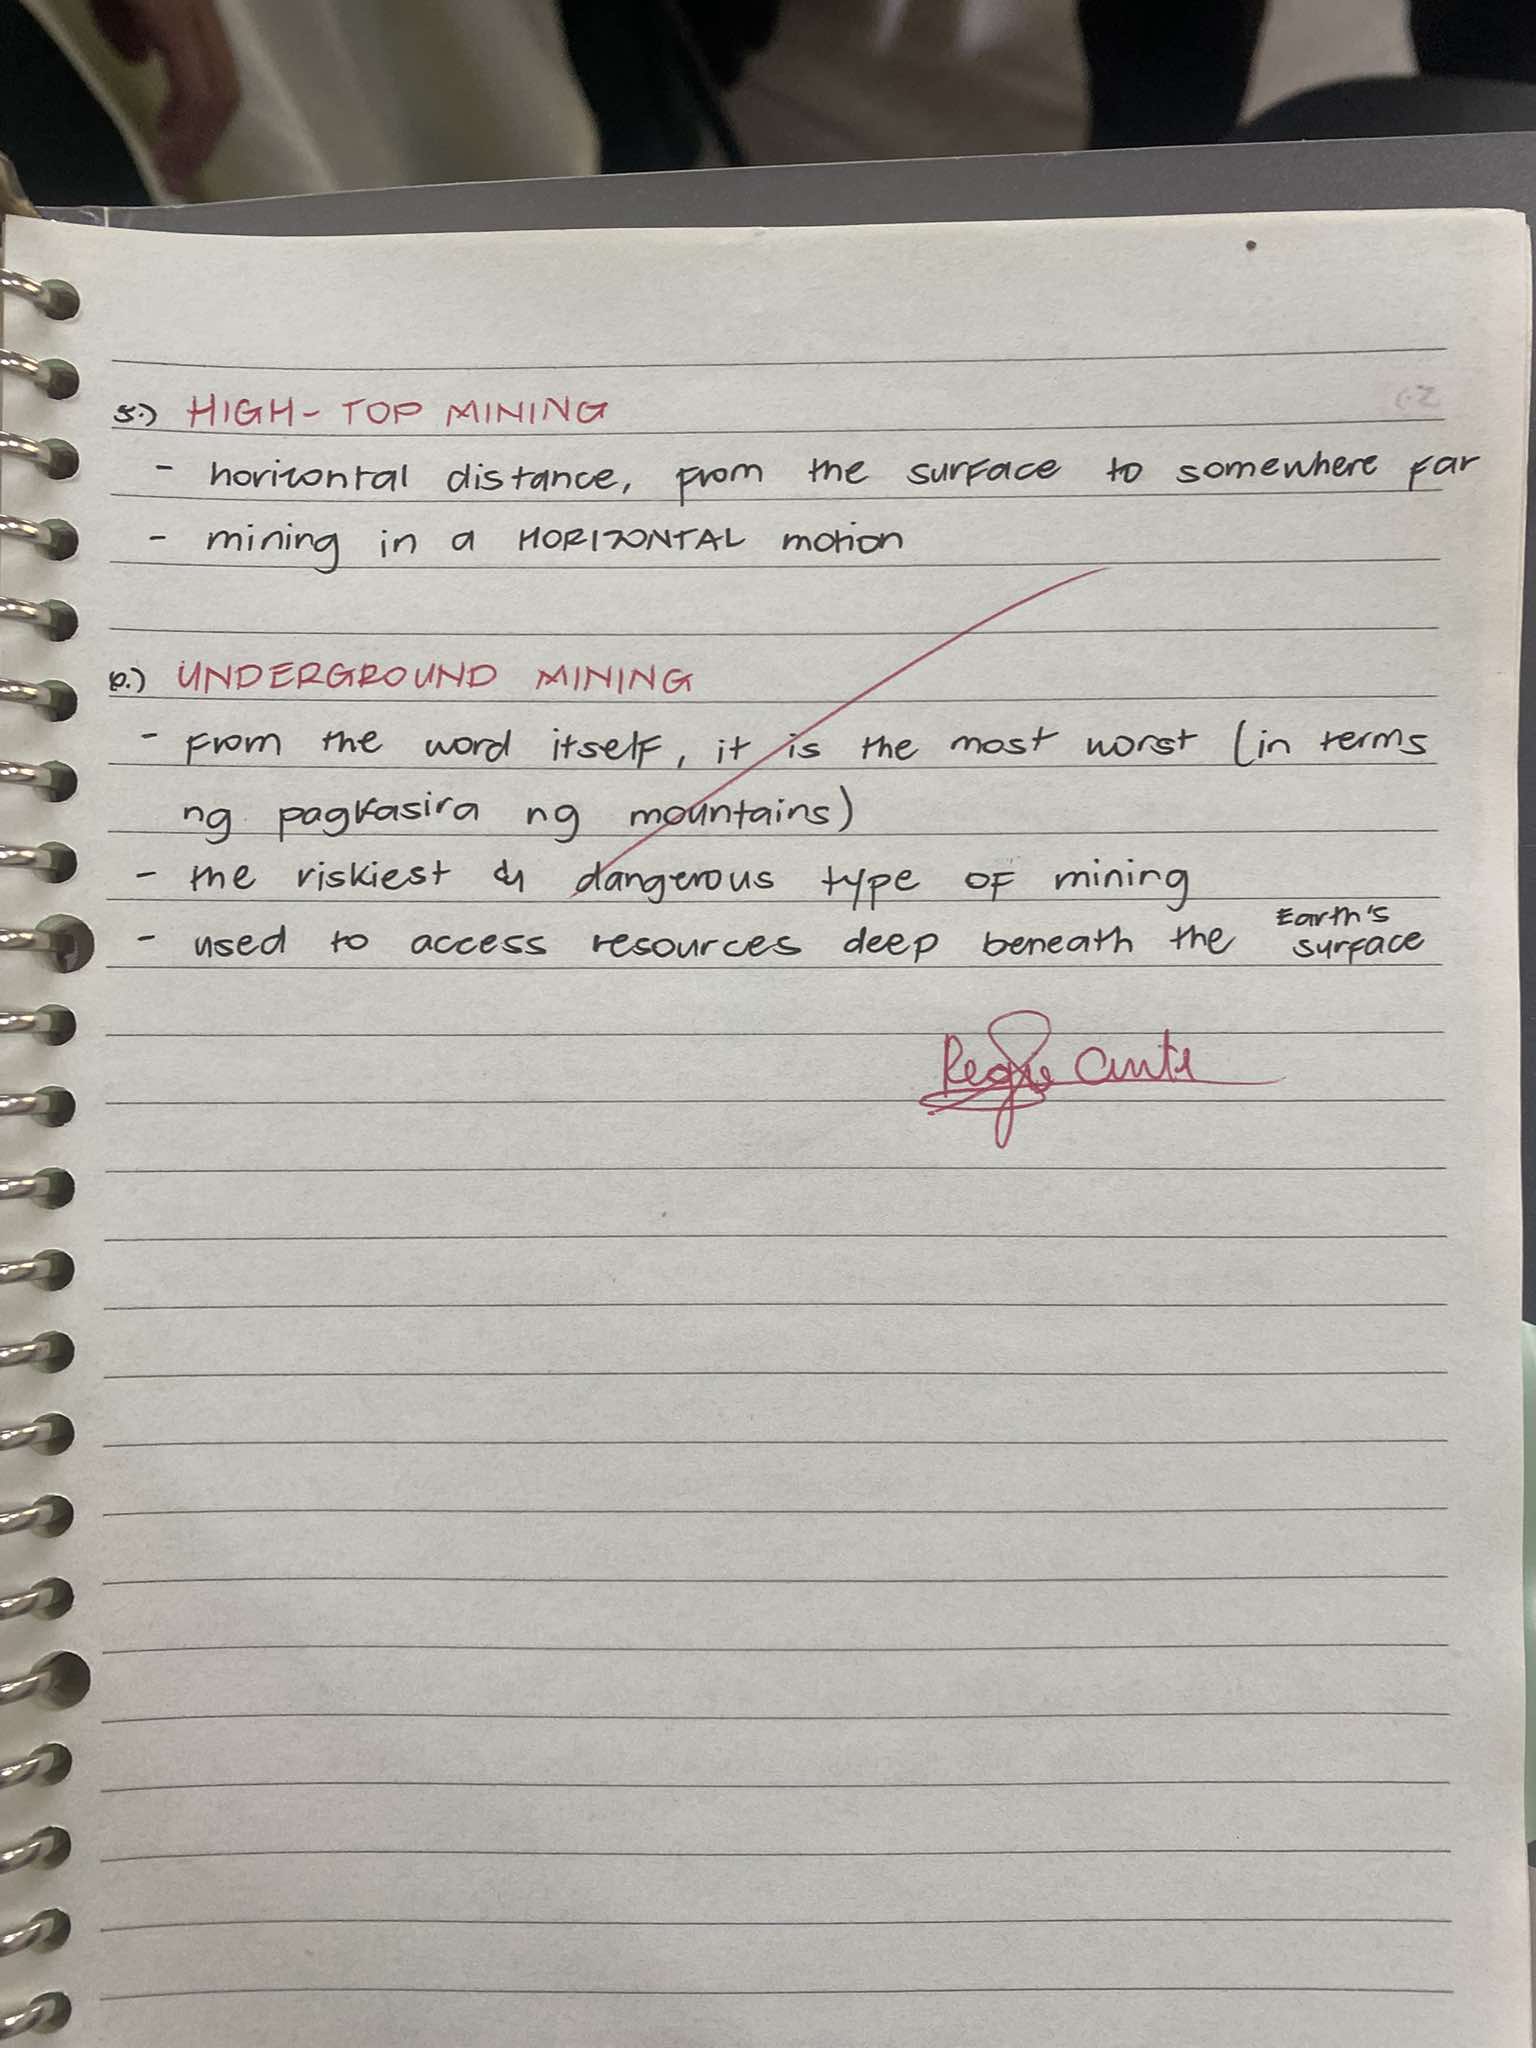 5.) HIGH-TOP MINING
- horizontal distance, from the surface to somewhere far
- mining in a HORIZONTAL motion
6.) UNDERGROUND MINING
- from the word itself, it is the most worst (in terms
ng pagkasira ng mountains)
- the riskiest & dangerous type of mining
- used to access resources deep beneath the Earth's surface